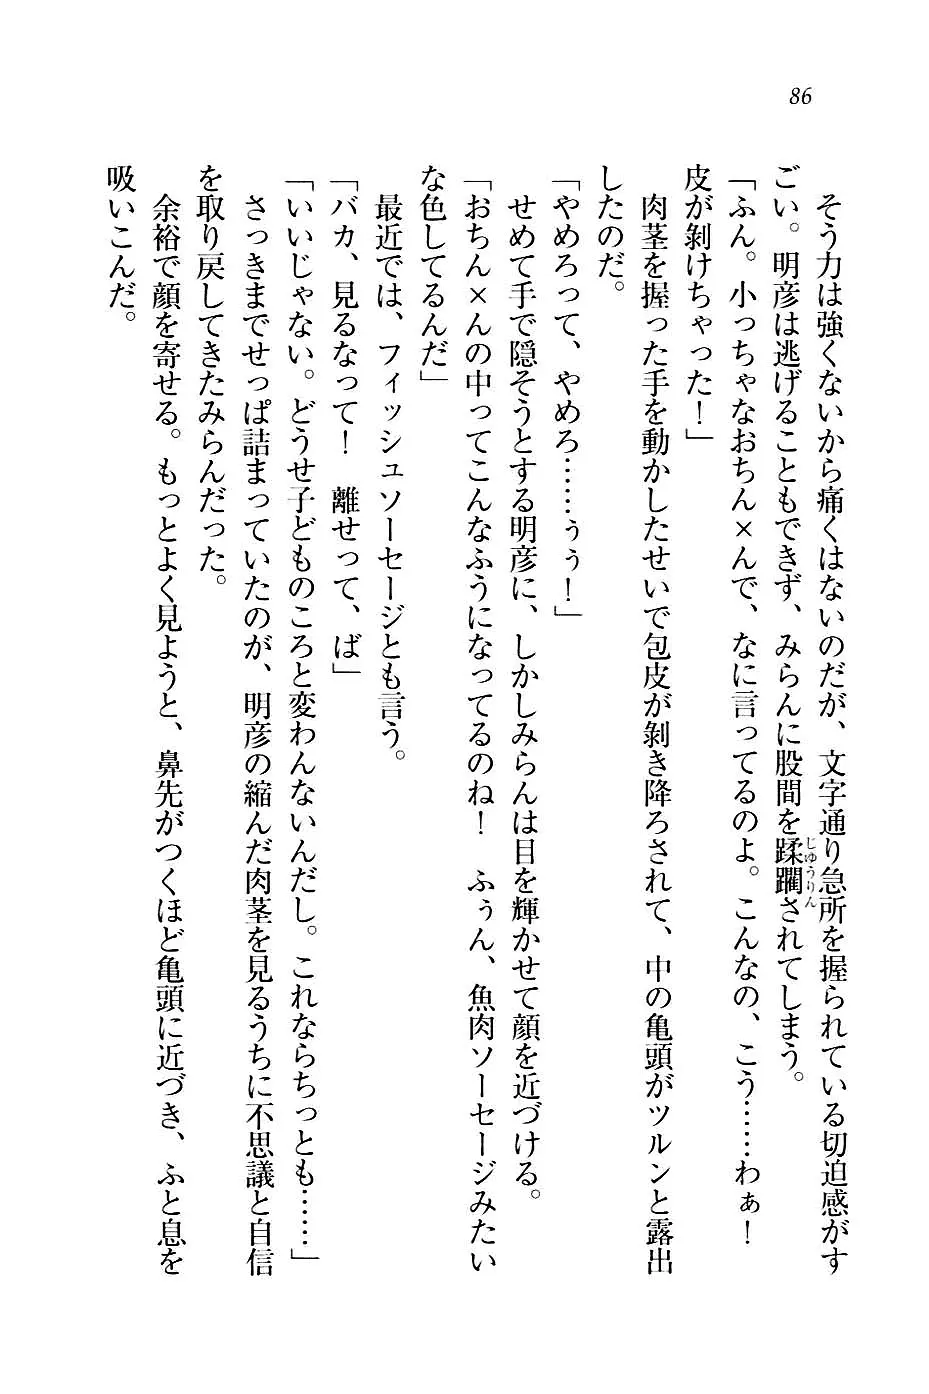 86
そう力は強くないから痛くはないのだが、文字通り急所を握られている切迫感がす
ごい。明彦は逃げることもできず、みらんに股間を蹂躙されてしまう。
じゅうりん
「ふん。小っちゃなおちん×んで、なに言ってるのよ。こんなの、こう……わぁ！
皮が剥けちゃった！」
肉茎を握った手を動かしたせいで包皮が剥き降ろされて、中の亀頭がツルンと露出
したのだ。
「やめろって、やめろ……ぅぅ！」
せめて手で隠そうとする明彦に、しかしみらんは目を輝かせて顔を近づける。
「おちん×んの中ってこんなふうになってるのね！　ふぅん、魚肉ソーセージみたい
な色してるんだ」
最近では、フィッシュソーセージとも言う。
「バカ、見るなって！　離せって、ば」
「いいじゃない。どうせ子どものころと変わんないんだし。これならちっとも……」
さっきまでせっぱ詰まっていたのが、明彦の縮んだ肉茎を見るうちに不思議と自信
を取り戻してきたみらんだった。
余裕で顔を寄せる。もっとよく見ようと、鼻先がつくほど亀頭に近づき、ふと息を
吸いこんだ。